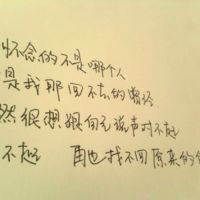 怀念的不是哪个人
是我那回不去的曾经
然很想跟自己说声对不起
不起 再也找不回原来的